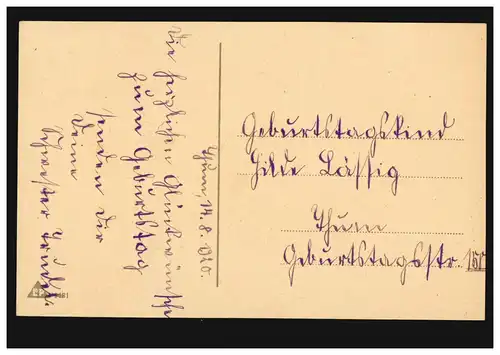 Thum, 14.8.
Die herzlichen Glückwünsche
zum Geburtstag
senden dir
Deine
Schwester Trudel.
Geburtstagskind
Hilde Lässig
Thum
Geburtstagsstr.